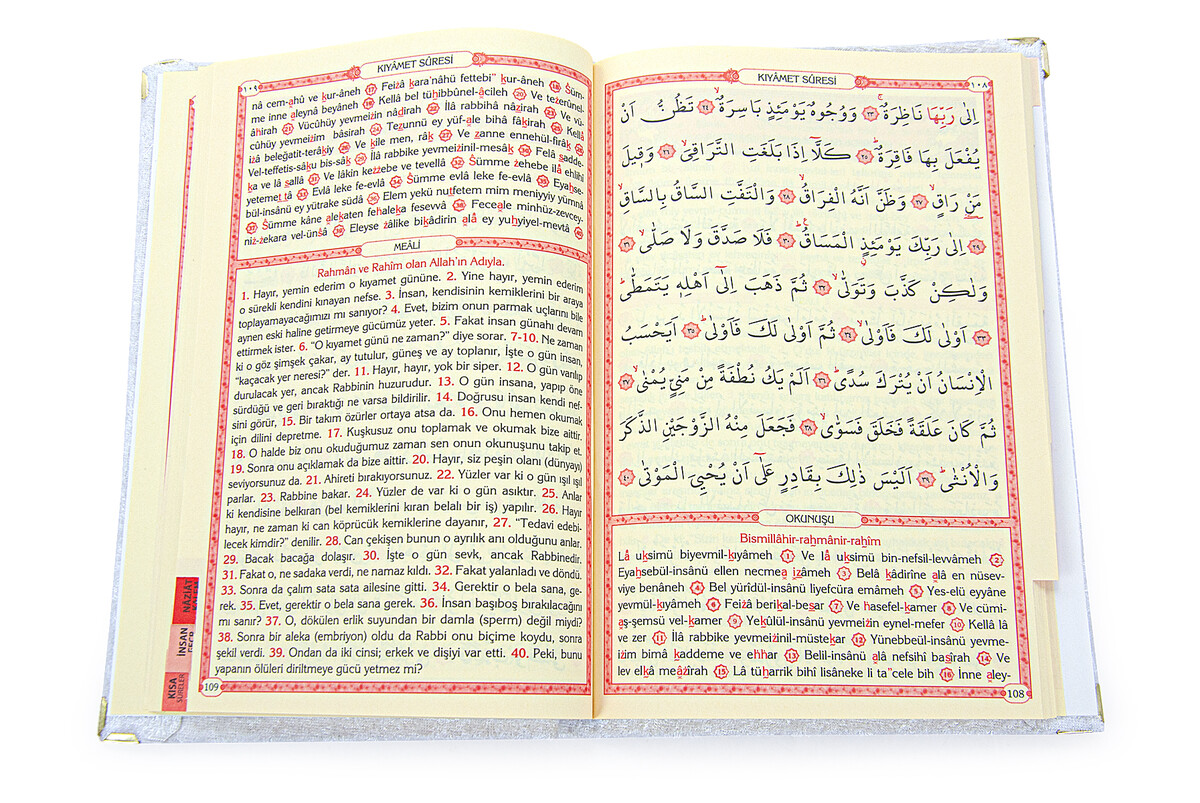 KIYÂMET SÛRESİ
١٠٨
اِلٰى رَبِّهَا نَاظِرَةٌۚ ٢٣ وَوُجُوهٌ يَوْمَئِذٍ بَاسِرَةٌۙ ٢٤ تَظُنُّ اَنْ
يُفْعَلَ بِهَا فَاقِرَةٌۜ ٢٥ كَلَّٓا اِذَا بَلَغَتِ التَّرَاقِيَۙ ٢٦ وَق۪يلَ
مَنْ رَاقٍۙ ٢٧ وَظَنَّ اَنَّهُ الْفِرَاقُۙ ٢٨ وَالْتَفَّتِ السَّاقُ بِالسَّاقِۙ
٢٩ اِلٰى رَبِّكَ يَوْمَئِذٍ الْمَسَاقُۜ ٣٠ فَلَا صَدَّقَ وَلَا صَلّٰىۙ ٣١
وَلٰكِنْ كَذَّبَ وَتَوَلّٰىۙ ٣٢ ثُمَّ ذَهَبَ اِلٰٓى اَهْلِه۪ يَتَمَطّٰىۜ
٣٣ اَوْلٰى لَكَ فَاَوْلٰىۙ ٣٤ ثُمَّ اَوْلٰى لَكَ فَاَوْلٰىۜ ٣٥ اَيَحْسَبُ
الْاِنْسَانُ اَنْ يُتْرَكَ سُدًىۜ ٣٦ اَلَمْ يَكُ نُطْفَةً مِنْ مَنِيٍّ يُمْنٰىۙ ٣٧
ثُمَّ كَانَ عَلَقَةً فَخَلَقَ فَسَوّٰىۙ ٣٨ فَجَعَلَ مِنْهُ الزَّوْجَيْنِ الذَّكَرَ
وَالْاُنْثٰىۜ ٣٩ اَلَيْسَ ذٰلِكَ بِقَادِرٍ عَلٰٓى اَنْ يُحْيِيَ الْمَوْتٰى ٤٠
OKUNUŞU
Bismillâhir-rahmânir-rahîm
Lâ uksimü biyevmil-kıyâmeh 1 Ve lâ uksimü bin-nefsil-levvâmeh 2
Eyahsebül-insânü ellen necmea ızâmeh 3 Belâ kâdirîne alâ en nüsev-
viye benâneh 4 Bel yürîdül-insânü liyefcüra emâmeh 5 Yes-elü eyyâne
yevmül-kıyâmeh 6 Feizâ berikal-besar 7 Ve hasefel-kamer 8 Ve cümi-
aş-şemsü vel-kamer 9 Yekûlül-insânü yevmeizin eynel-mefer 10 Kellâ lâ
ve zer 11 İlâ rabbike yevmeizinil-müstekar 12 Yünebbeül-insânü yevme-
izim bimâ kaddeme ve ehhar 13 Belil-insânü alâ nefsihî basîrah 14 Ve
lev elkâ meâzîrah 15 Lâ tüharrik bihî lisâneke li ta“cele bih 16 İnne aley-
108
KIYÂMET SÛRESİ
١٠٩
nâ cem-ahû ve kur-âneh 17 Feizâ kara'nâhü fettebi” kur-âneh 18 Süm-
me inne aleynâ beyâneh 19 Kellâ bel tühibbûnel-âcileh 20 Ve tezerûnel-
âhirah 21 Vücûhüy yevmeizin nâdirah 22 İlâ rabbihâ nâzirah 23 Ve vü-
cûhüy yevmeizim bâsirah 24 Tezunnü ey yüf-ale bihâ fâkirah 25 Kellâ
izâ beleğatit-terâkiy 26 Ve kîle men, râk 27 Ve zanne ennehül-firâk 28
Vel-teffetis-sâku bis-sâk 29 İlâ rabbike yevmeizinil-mesâk 30 Felâ sadde-
ka ve lâ sallâ 31 Ve lâkin kezzebe ve tevellâ 32 Sümme zehebe ilâ ehlihî
yetemettâ 33 Evlâ leke fe-evlâ 34 Sümme evlâ leke fe-evlâ 35 Eyahse-
bül-insânü ey yütrake südâ 36 Elem yekü nutfetem mim meniyyiy yümnâ
37 Sümme kâne alekaten fehaleka fesevvâ 38 Feceale minhüz-zevcey-
niz-zekara vel-ünsâ 39 Eleyse zâlike bikâdirin alâ ey yuhyiyel-mevtâ 40
MEÂLİ
Rahmân ve Rahîm olan Allah'ın Adıyla.
1. Hayır, yemin ederim o kıyamet gününe. 2. Yine hayır, yemin ederim
o sürekli kendini kınayan nefse. 3. İnsan, kendisinin kemiklerini bir araya
toplayamayacağımızı mı sanıyor? 4. Evet, bizim onun parmak uçlarını bile
aynen eski haline getirmeye gücümüz yeter. 5. Fakat insan günahı devam
ettirmek ister. 6. “O kıyamet günü ne zaman?” diye sorar. 7-10. Ne zaman
ki o göz şimşek çakar, ay tutulur, güneş ve ay toplanır, İşte o gün insan,
“kaçacak yer neresi?” der. 11. Hayır, hayır, yok bir siper. 12. O gün varılıp
durulacak yer, ancak Rabbinin huzurudur. 13. O gün insana, yapıp öne
sürdüğü ve geri bıraktığı ne varsa bildirilir. 14. Doğrusu insan kendi nef-
sini görür, 15. Bir takım özürler ortaya atsa da. 16. Onu hemen okumak
için dilini depretme. 17. Kuşkusuz onu toplamak ve okumak bize aittir.
18. O halde biz onu okuduğumuz zaman sen onun okunuşunu takip et.
19. Sonra onu açıklamak da bize aittir. 20. Hayır, siz peşin olanı (dünyayı)
seviyorsunuz da. 21. Ahireti bırakıyorsunuz. 22. Yüzler var ki o gün ışıl ışıl
parlar. 23. Rabbine bakar. 24. Yüzler de var ki o gün asıktır. 25. Anlar
ki kendisine belkıran (bel kemiklerini kıran belalı bir iş) yapılır. 26. Hayır
hayır, ne zaman ki can köprücük kemiklerine dayanır, 27. “Tedavi edebi-
lecek kimdir?” denilir. 28. Can çekişen bunun o ayrılık anı olduğunu anlar.
29. Bacak bacağa dolaşır. 30. İşte o gün sevk, ancak Rabbinedir.
31. Fakat o, ne sadaka verdi, ne namaz kıldı. 32. Fakat yalanladı ve döndü.
33. Sonra da çalım sata sata ailesine gitti. 34. Gerektir o bela sana, ge-
rek. 35. Evet, gerektir o bela sana gerek. 36. İnsan başıboş bırakılacağını
mı sanır? 37. O, dökülen erlik suyundan bir damla (sperm) değil miydi?
38. Sonra bir aleka (embriyon) oldu da Rabbi onu biçime koydu, sonra
şekil verdi. 39. Ondan da iki cinsi; erkek ve dişiyi var etti. 40. Peki, bunu
yapanın ölüleri diriltmeye gücü yetmez mi?
109
NÂZİÂT
İNSAN
KISA
SURELER